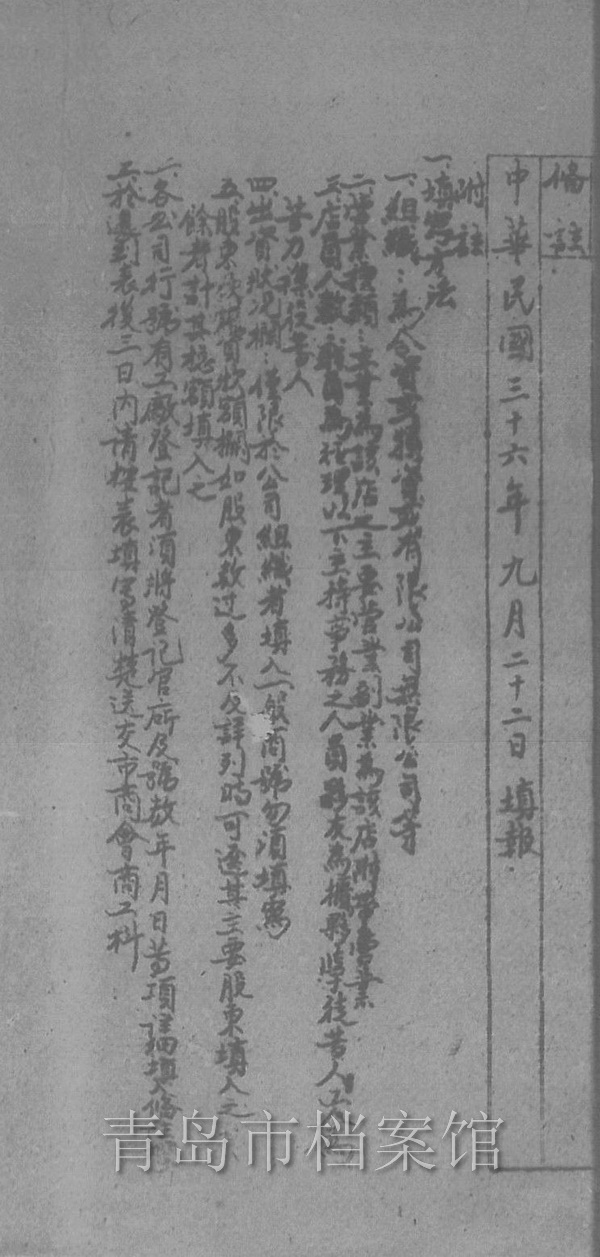 備註
中華民國三十六年九月二十二日填報
附註
一、填寫方法
一、組織：為合資或獨資或有限公司無限公司等
二、營業種類：主業為該店之主要營業副業為該店附帶營業
三、店員人數：職員為經理以下主持事務之人員夥友為櫃夥學徒
苦力雜役等人
四、出資狀況欄：僅限於公司組織者填入一般商號勿須填寫
五、股東及出資狀額欄如股東數过多不及詳列時可逕其主要股東填入之
餘者計其總額填入之
二、各公司行號有工廠登記者須將登記官所及號数年月日等項詳細填入備註
三、於這到表後三日內請按表填寫清楚送交市商會商工科
青岛市档案馆